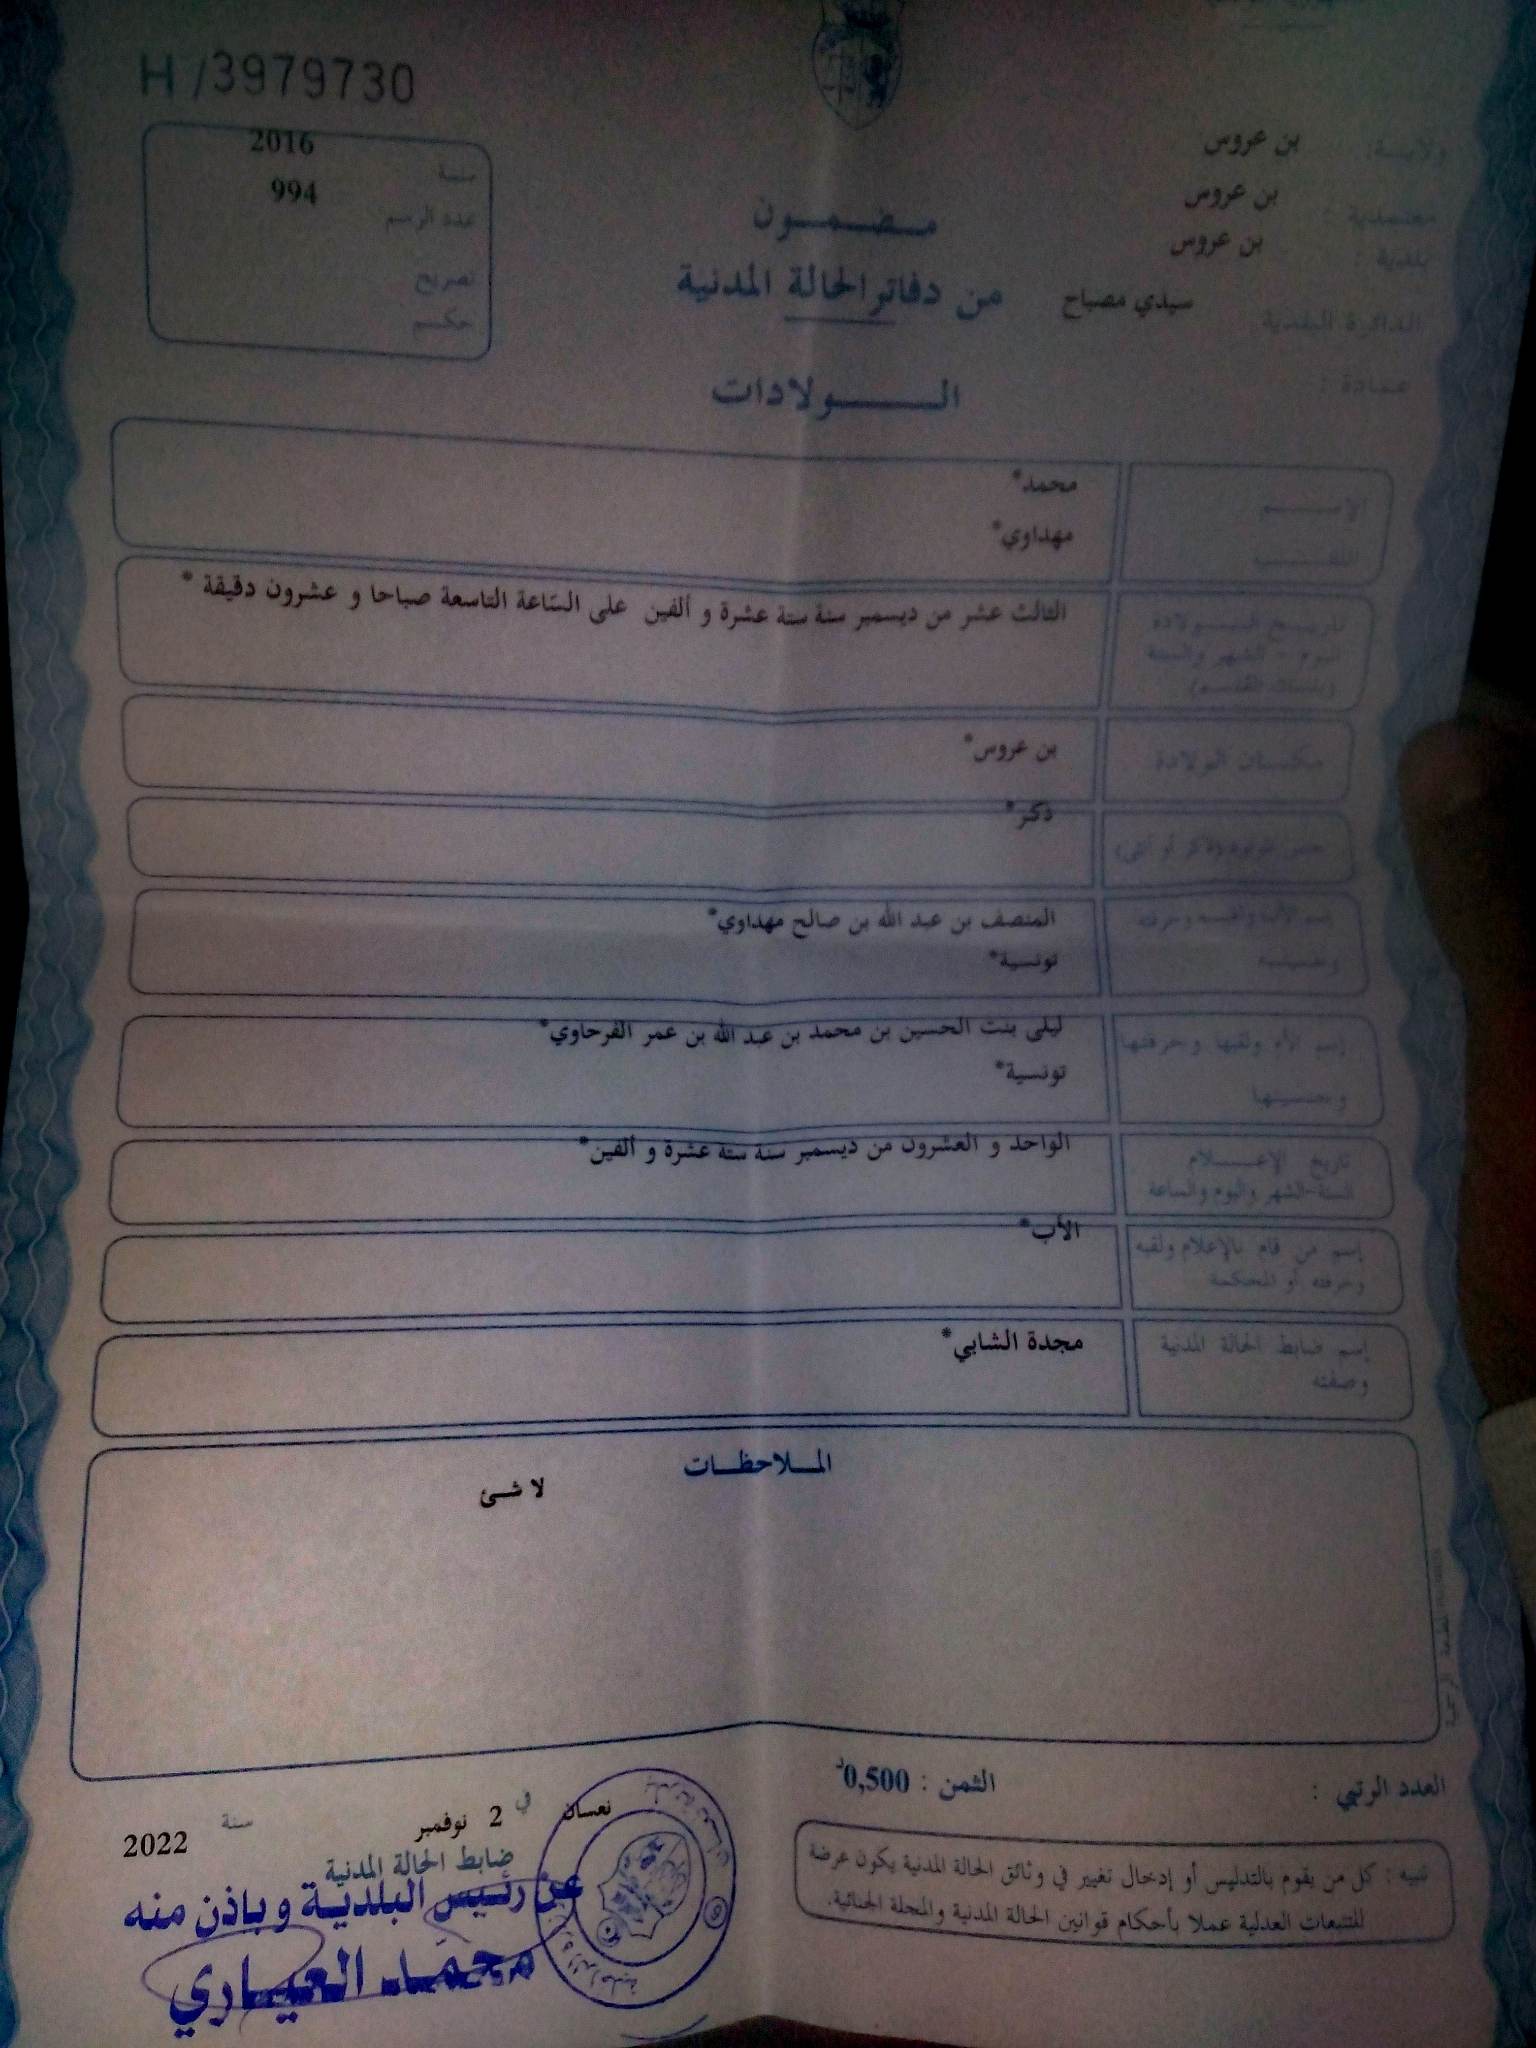 H /3979730
ولايـة: بن عروس
معتمدية : بن عروس
بلدية : بن عروس
الدائرة البلدية سيدي مصباح
عمادة :
سنـة 2016
عدد الرسم 994
تصريح
حكـم
مـضـمـون
من دفاتر الحالة المدنية
الـــولادات
الإســـم محمد*
اللقــب مهداوي*
تاريـخ الـولادة
اليوم - الشهر والسنة
(بلسان القلـم)
الثالث عشر من ديسمبر سنة ستة عشرة و ألفين على السّاعة التاسعة صباحا و عشرون دقيقة *
مكـان الولادة بن عروس*
جنس المولود (ذكر أو أنثى) ذكر*
إسم الأب ولقبـه وحرفته المنصف بن عبد الله بن صالح مهداوي*
وجنسيتـه تونسية*
إسم الأم ولقبها وحرفتها ليلى بنت الحسين بن محمد بن عبد الله بن عمر الفرحاوي*
وجنسيتها تونسية*
تاريخ الإعـلام الواحد و العشرون من ديسمبر سنة ستة عشرة و ألفين*
السنة-الشهر واليوم والساعة
إسم من قام بالإعلام ولقبه الأب*
وحرفته أو المحكمة
إسم ضابط الحالة المدنية مجدة الشابي*
وصفته
المـلاحظـات
لا شئ
العدد الرتبي :
الثمن : 0,500د
تنبيه : كل من يقوم بالتدليس أو إدخال تغيير في وثائق الحالة المدنية يكون عرضة
للتتبعات العدلية عملا بأحكام قوانين الحالة المدنية والمجلة الجنائية.
نعسان في 2 نوفمبر سنة 2022
ضابط الحالة المدنية
عن رئيس البلدية وباذن منه
محمّد العياري